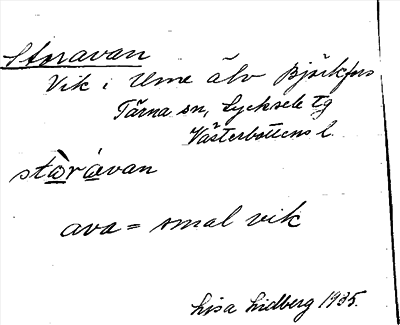 Storavan
Vik i Ume älv Björkfors
Tärna sn, Lycksele tg
Västerbottens l.
stωrávan
ava = smal vik
Lisa Lidberg 1935.